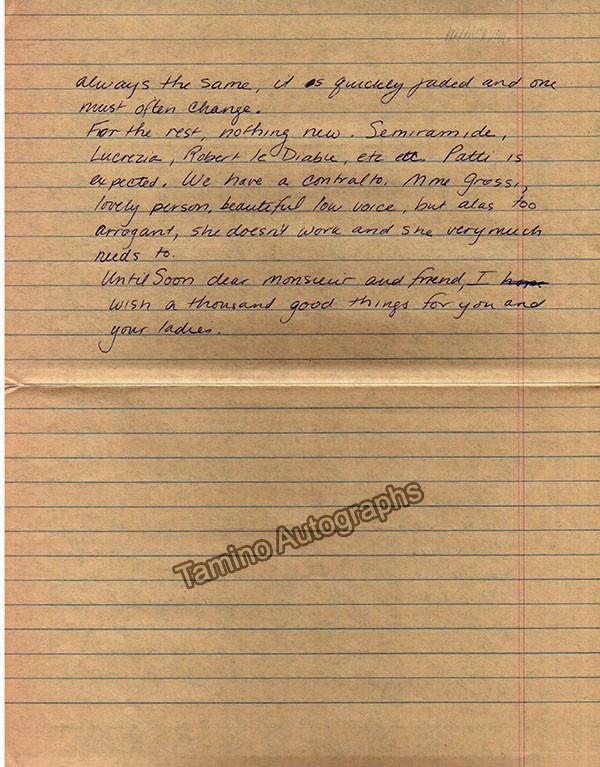 always the same, it is quickly jaded and one
must often change.
For the rest, nothing new. Semiramide,
Lucrezia, Robert le Diable, etc etc Patti is
expected. We have a contralto, Mme Grossi,
lovely person, beautiful low voice, but alas too
arrogant, she doesn't work and she very much
needs to.
Until Soon dear monsieur and friend, I hope
wish a thousand good things for you and
your ladies.
Tamino Autographs